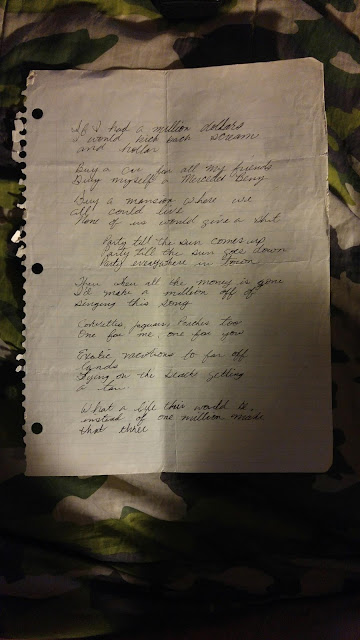 If I had a million dollars
I would kick back scream
and hollar
Buy a car for all my friends
Buy myself a Mercedes Benz
Buy a mansion where we
all could live
None of us would give a shit
Party till the sun comes up
Party till the sun goes down
Party everywhere in town
Then when all the money is gone
I'd make a million off of
singing this song
Corvettes, jaguars, Porsches too
One for me, one for you
Exotic vacations to far off
lands
Lying on the beach getting
a tan
What a life this would be,
instead of one million make
that three